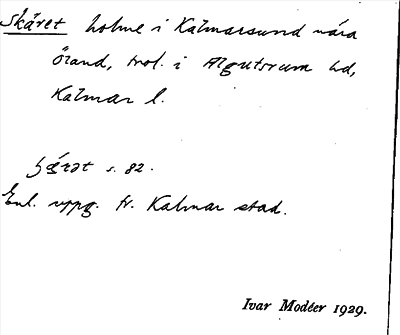 Skäret holme i Kalmarsund nära
Öland, trol. i Algutsrum hd,
Kalmar l.
s. 82.
Enl. uppg. fr. Kalmar stad.
Ivar Modéer 1929.